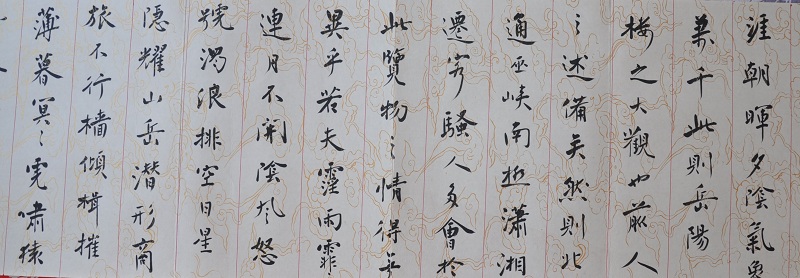 涯朝暉夕陰氣象
萬千此則岳陽
樓之大觀也前人
之述備矣然則北
通巫峽南極瀟湘
遷客騷人多會於
此覽物之情得無
異乎若夫霪雨霏
連月不開陰風怒
號濁浪排空日星
隱耀山岳潛形商
旅不行檣傾楫摧
薄暮冥々虎嘯猿